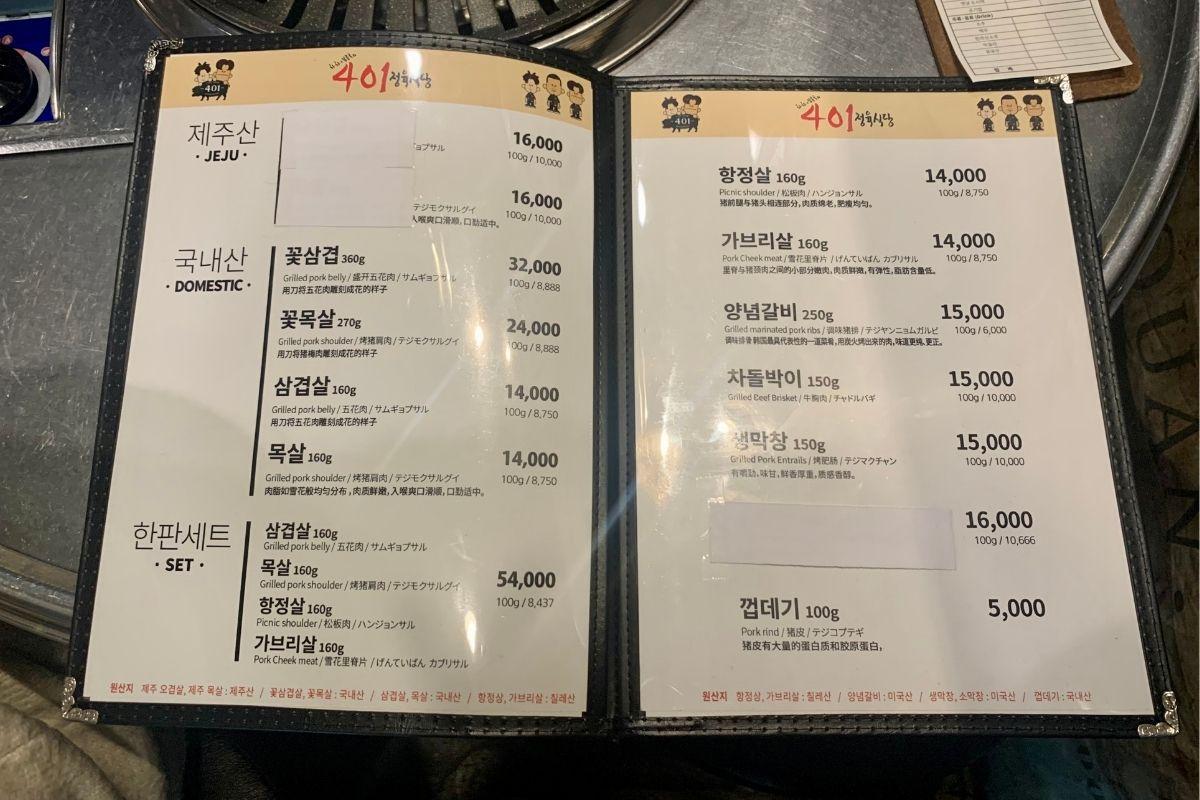 401
401 정육식당
제주산
· JEJU ·
ョプサル
16,000
100g / 10,000
テジモクサルグイ
入喉爽口滑顺，口劲适中。
16,000
100g / 10,000
국내산
· DOMESTIC ·
꽃삼겹 360g
Grilled pork belly / 盛开五花肉 / サムギョプサル
用刀将五花肉雕刻成花的样子
32,000
100g / 8,888
꽃목살 270g
Grilled pork shoulder / 烤猪肩肉 / テジモクサルグイ
用刀将猪梅肉雕刻成花的样子
24,000
100g / 8,888
삼겹살 160g
Grilled pork belly / 五花肉 / サムギョプサル
用刀将五花肉雕刻成花的样子
14,000
100g / 8,750
목살 160g
Grilled pork shoulder / 烤猪肩肉 / テジモクサルグイ
肉脂如雪花般均匀分布，肉质鲜嫩，入喉爽口滑顺，口劲适中。
14,000
100g / 8,750
한판세트
· SET ·
삼겹살 160g
Grilled pork belly / 五花肉 / サムギョプサル
목살 160g
Grilled pork shoulder / 烤猪肩肉 / テジモクサルグイ
항정살 160g
Picnic shoulder / 松板肉 / ハンジョンサル
가브리살 160g
Pork Cheek meat / 雪花里脊片 / げんていばん カブリサル
54,000
100g / 8,437
원산지 제주 오겹살, 제주 목살 : 제주산 / 꽃삼겹살, 꽃목살 : 국내산 / 삼겹살, 목살 : 국내산 / 항정상, 가브리살 : 칠레산
401
401 정육식당
항정살 160g
Picnic shoulder / 松板肉 / ハンジョンサル
猪前腿与猪头相连部分，肉质绵老，肥瘦均匀。
14,000
100g / 8,750
가브리살 160g
Pork Cheek meat / 雪花里脊片 / げんていばん カブリサル
里脊与猪颈肉之间的小部分嫩肉，肉质鲜嫩，有弹性，脂肪含量低。
14,000
100g / 8,750
양념갈비 250g
Grilled marinated pork ribs / 调味猪排 / テジヤンニョムガルビ
调味排骨 韩国最具代表性的一道菜肴，用炭火烤出来的肉，味道更纯、更正。
15,000
100g / 6,000
차돌박이 150g
Grilled Beef Brisket / 牛胸肉 / チャドルバギ
15,000
100g / 10,000
생막창 150g
Grilled Pork Entrails / 烤肥肠 / テジマクチャン
有嚼劲，味甘，鲜香厚重，质感香醇。
15,000
100g / 10,000
16,000
100g / 10,666
껍데기 100g
Pork rind / 猪皮 / テジコプテギ
猪皮有大量的蛋白质和胶原蛋白，
5,000
원산지 항정상, 가브리살 : 칠레산 / 양념갈비 : 미국산 / 생막창, 소막창 : 미국산 / 껍데기 : 국내산